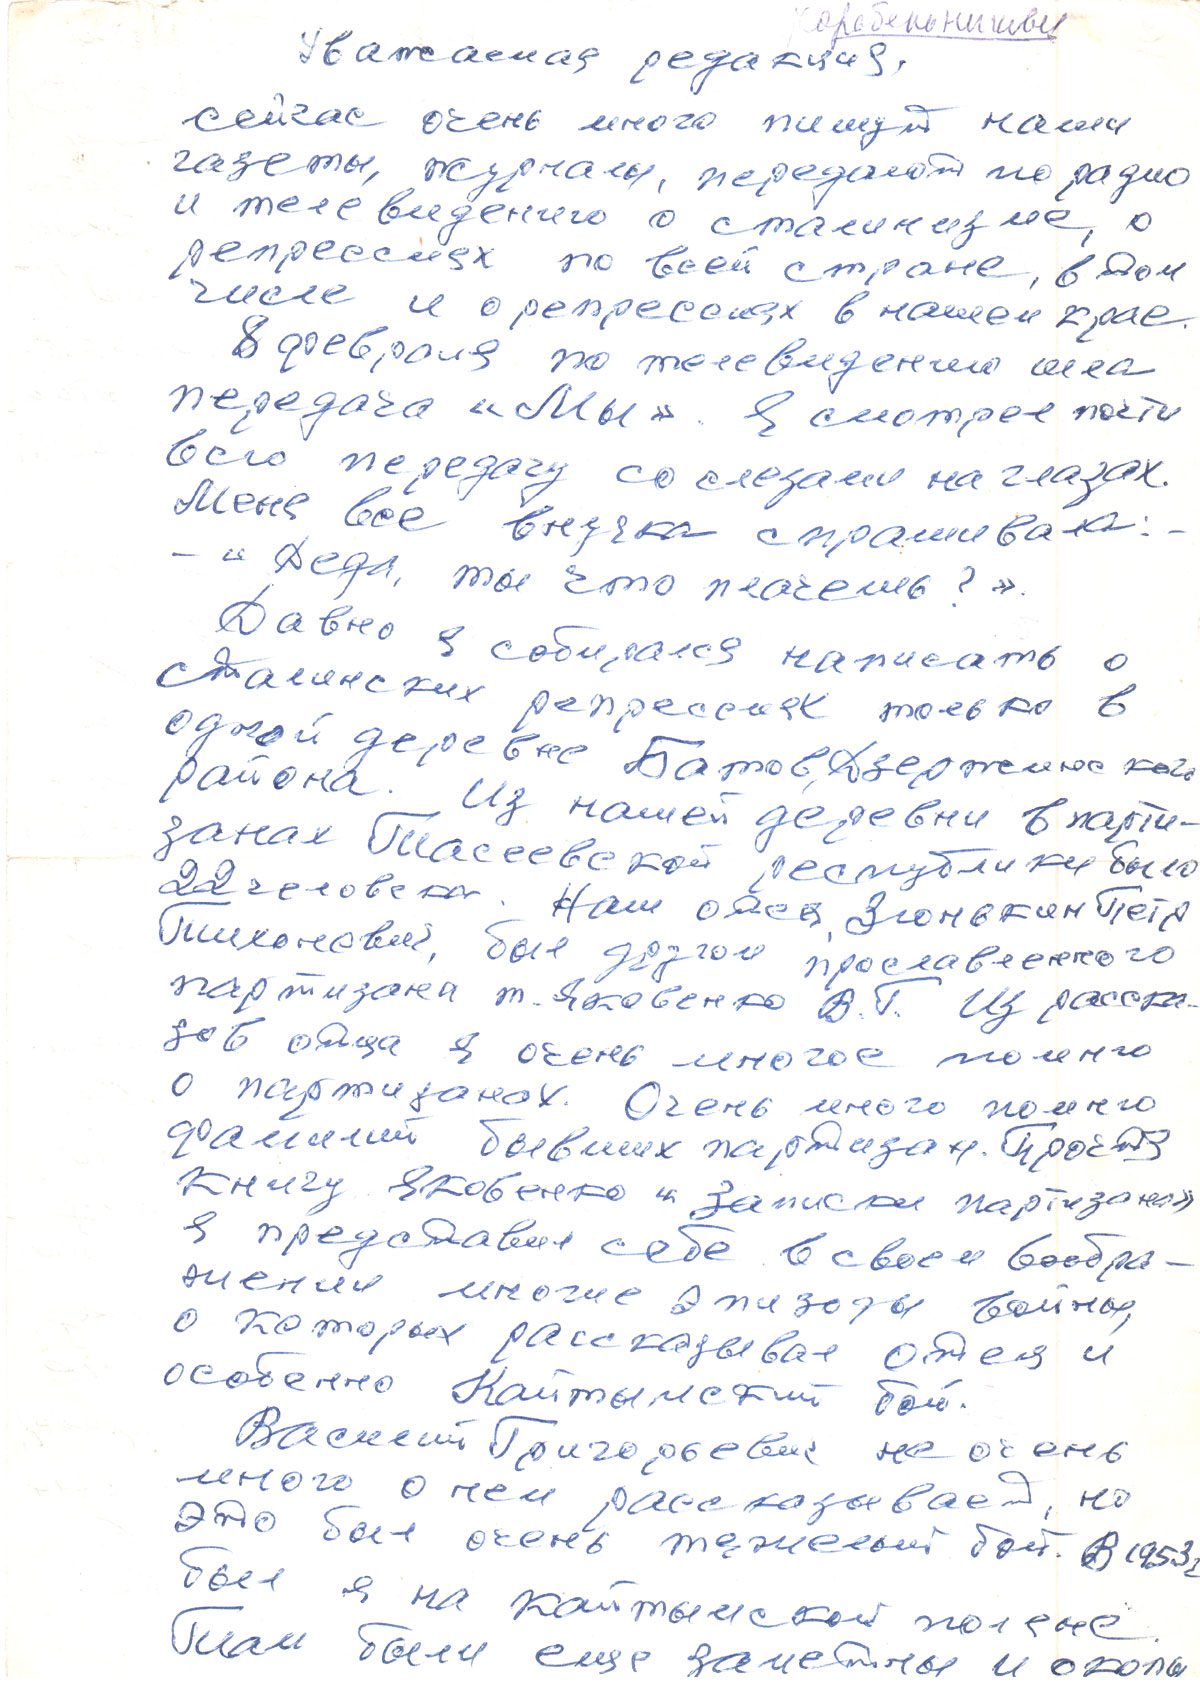 Коробельникова
Уважаемая редакция,
сейчас очень много пишут наши
газеты, журналы, передают по радио
и телевидению о сталинизме, о
репрессиях по всей стране, в том
числе и о репрессиях в нашем крае.
8 февраля по телевидению шла
передача «Мы». Я смотрел почти
всю передачу со слезами на глазах.
Меня все внучка спрашивала: -
- "Деда, ты что плачешь?».
Давно я собирался написать о
сталинских репрессиях только в
одной деревне Батов, Дзержинского
района. Из нашей деревни в парти-
занах Тасеевской республики было
22 человека. Наш отец, Зюнькин Петр
Тихонович, был другом прославленного
партизана т. Яковенко В.Г. Из расска-
зов отца я очень многое помню
о партизанах. Очень много помню
фамилий бывших партизан. Прочтя
книгу Яковенко "Записки партизана»
я представил себе в своем вообра-
жении многие эпизоды войны,
о которых рассказывал отец и
особенно Кайтымский бой.
Василий Григорьевич не очень
много о нем рассказывает, но
это был очень тяжелый бой. В 1953 г
был я на Кайтымской поляне.
Там были еще заметны и окопы